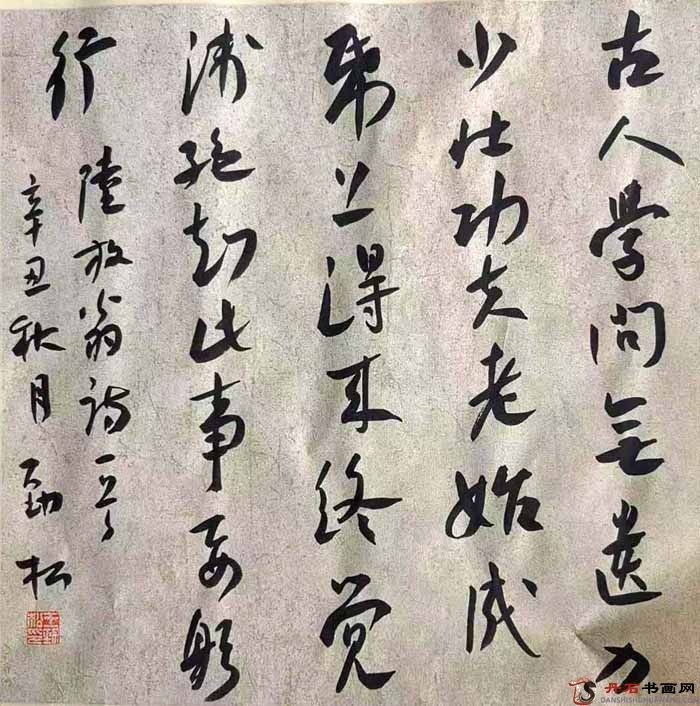 古人學問无遺力
少壮功夫老始成
帋上得来终觉
浅绝知此事要躬
行
陸放翁诗一首
辛丑秋月 劲松
丹石书画网
DANSHISHUHUAWANG.COM